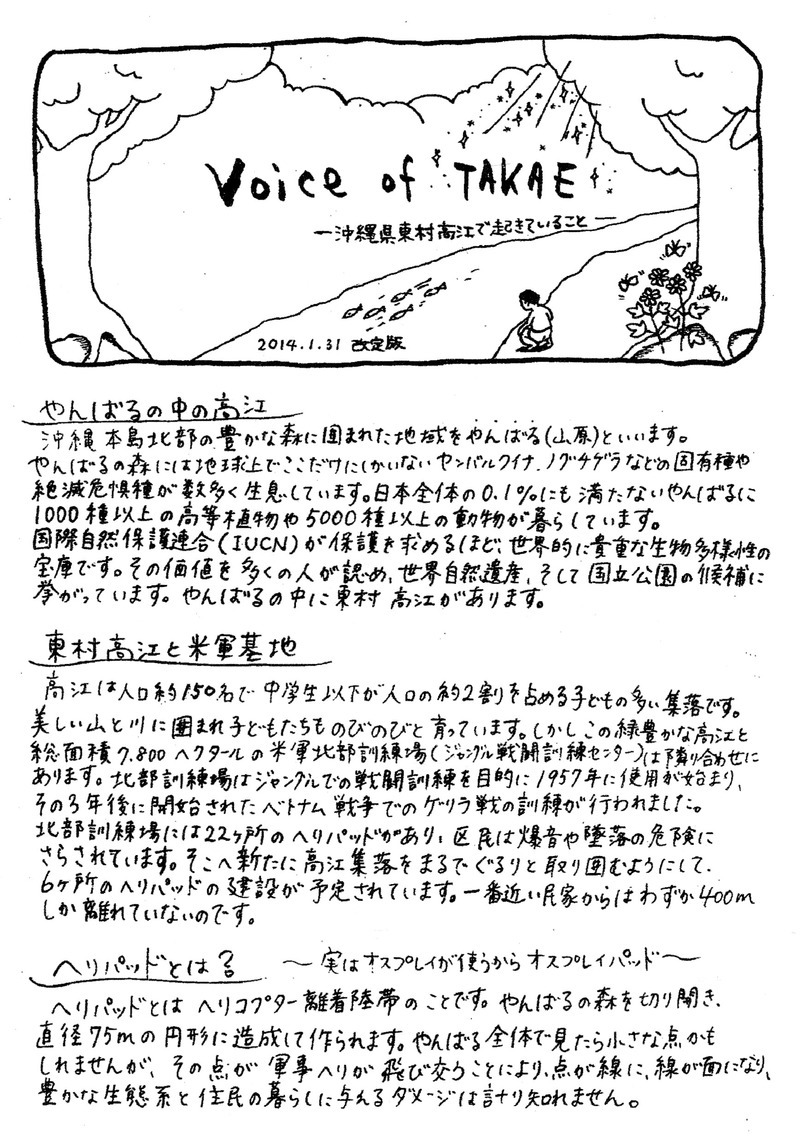 Voice of TAKAE
ー沖縄県東村高江で起きていることー
2014.1.31 改定版
やんばるの中の高江
沖縄本島北部の豊かな森に囲まれた地域をやんばる(山原)といいます。
やんばるの森には地球上でここだけにしかいないヤンバルクイナ、ノグチゲラなどの固有種や
絶滅危惧種が数多く生息しています。日本全体の0.1%にも満たないやんばるに
1000種以上の高等植物や5000種以上の動物が暮らしています。
国際自然保護連合(IUCN)が保護を求めるほど、世界的に貴重な生物多様性の
宝庫です。その価値を多くの人が認め、世界自然遺産、そして国立公園の候補に
挙がっています。やんばるの中に東村 高江があります。
東村高江と米軍基地
高江は人口約150名で中学生以下が人口の約2割を占める子どもの多い集落です。
美しい山と川に囲まれ子どもたちものびのびと育っています。しかしこの緑豊かな高江と
総面積7,800ヘクタールの米軍北部訓練場(ジャングル戦闘訓練センター)は隣り合わせに
あります。北部訓練場はジャングルでの戦闘訓練を目的に1957年に使用が始まり、
その3年後に開始されたベトナム戦争でのゲリラ戦の訓練が行われました。
北部訓練場には22ヶ所のヘリパッドがあり、区民は爆音や墜落の危険に
さらされています。そこへ新たに高江集落をまるでぐるりと取り囲むようにして、
6ヶ所のヘリパッドの建設が予定されています。一番近い民家からはわずか400m
しか離れていないのです。
ヘリパッドとは？ 〜実はオスプレイが使うからオスプレイパッド〜
ヘリパッドとはヘリコプター離着陸帯のことです。やんばるの森を切り開き、
直径75mの円形に造成して作られます。やんばる全体で見たら小さな点かも
しれませんが、その点が軍事ヘリが飛び交うことにより、点が線に、線が面になり、
豊かな生態系と住民の暮らしに与えるダメージは計り知れません。